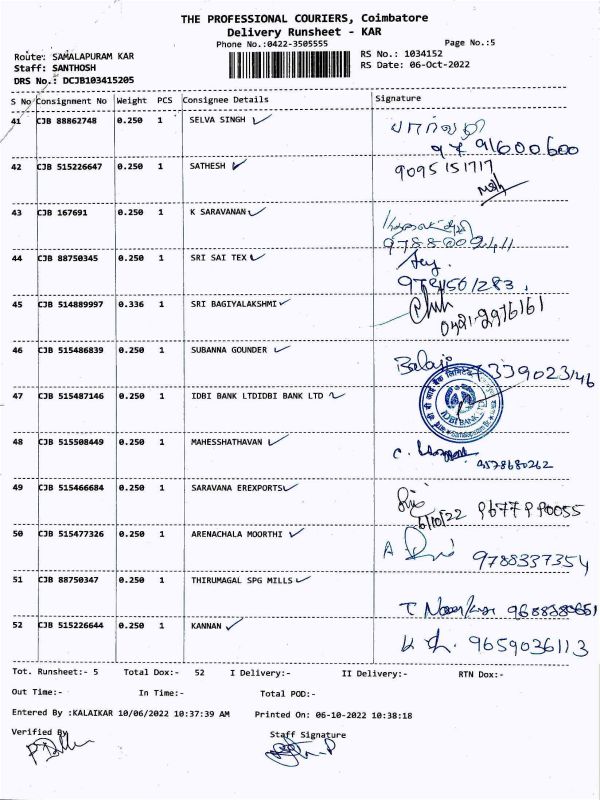 THE PROFESSIONAL COURIERS, Coimbatore
Delivery Runsheet - KAR
Phone No.:0422-3505555
Page No.:5
Route: SAMALAPURAM KAR
RS No.: 1034152
Staff: SANTHOSH
RS Date: 06-Oct-2022
DRS No.: DCJB103415205
S No Consignment No Weight PCS Consignee Details Signature
41 CJB 88862748 0.250 1 SELVA SINGH
42 CJB 515226647 0.250 1 SATHESH
9095151717
43 CJB 167691 0.250 1 K SARAVANAN
44 CJB 88750345 0.250 1 SRI SAI TEX
45 CJB 514889997 0.336 1 SRI BAGIYALAKSHMI
0421-2976161
46 CJB 515486839 0.250 1 SUBANNA GOUNDER
Balaji
47 CJB 515487146 0.250 1 IDBI BANK LTDIDBI BANK LTD
IDBI BANK LTD
48 CJB 515508449 0.250 1 MAHESSHATHAVAN
9578680262
49 CJB 515466684 0.250 1 SARAVANA EREXPORTS
6/10/22
50 CJB 515477326 0.250 1 ARENACHALA MOORTHI
9788337354
51 CJB 88750347 0.250 1 THIRUMAGAL SPG MILLS
52 CJB 515226644 0.250 1 KANNAN
9659036113
Tot. Runsheet:- 5 Total Dox:- 52 I Delivery:- II Delivery:- RTN Dox:-
Out Time:- In Time:- Total POD:-
Entered By :KALAIKAR 10/06/2022 10:37:39 AM Printed On: 06-10-2022 10:38:18
Verified By Staff Signature